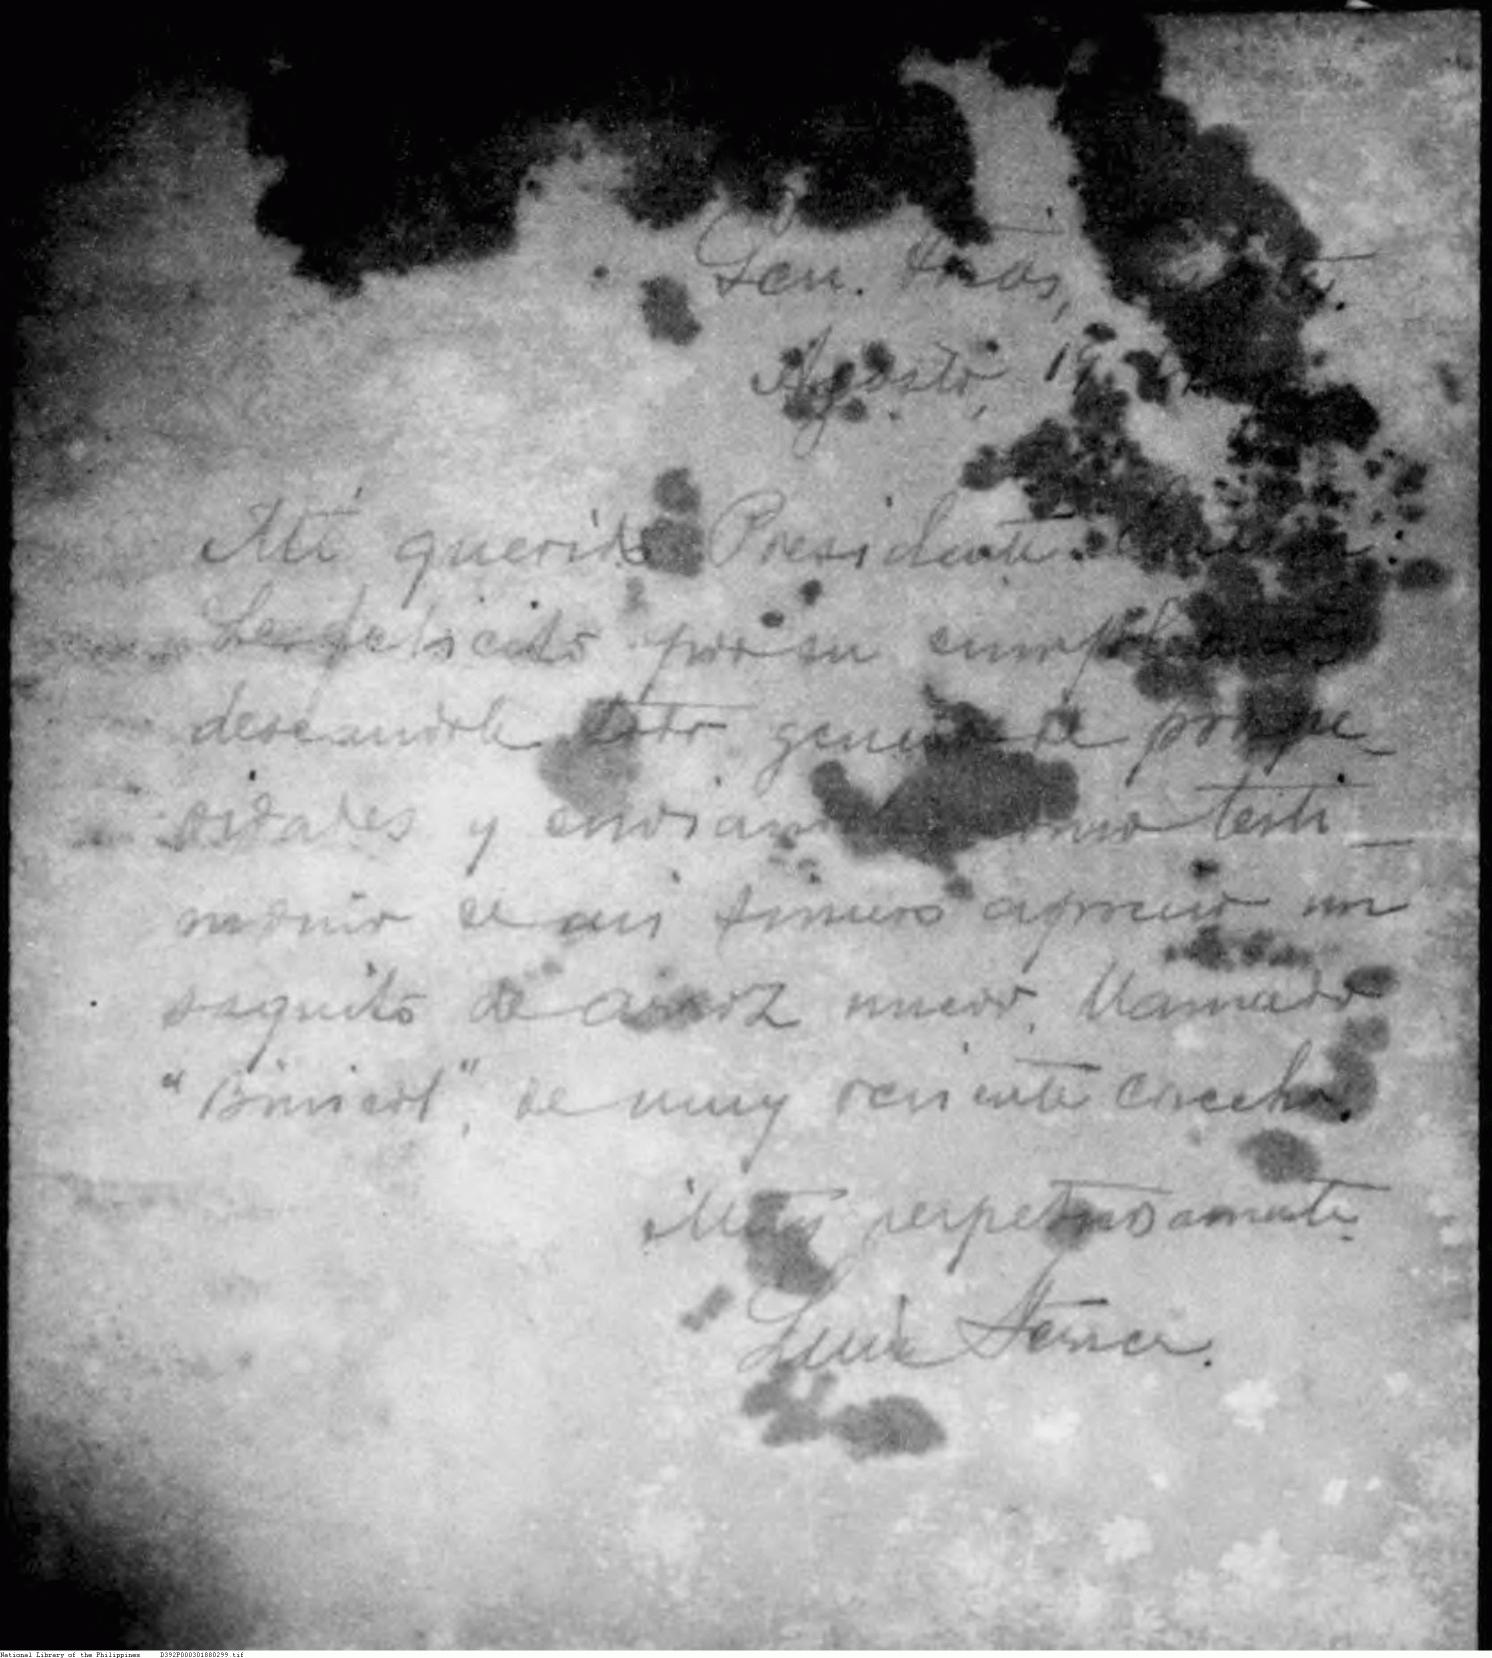 Gen. Trias,
Agosto, 19
Mi querido Presidente
Le felicito por su cumpleaños
deseandole todo genero de prospe-
ridades y enviandole como testi-
monio de mi sincero aprecio un
saquito de arroz nuevo, llamado
"Binicol", de muy reciente cosecha.
Muy respetuosamente
Luis Ferrer.
National Library of the Philippines D392P000301880299.tif